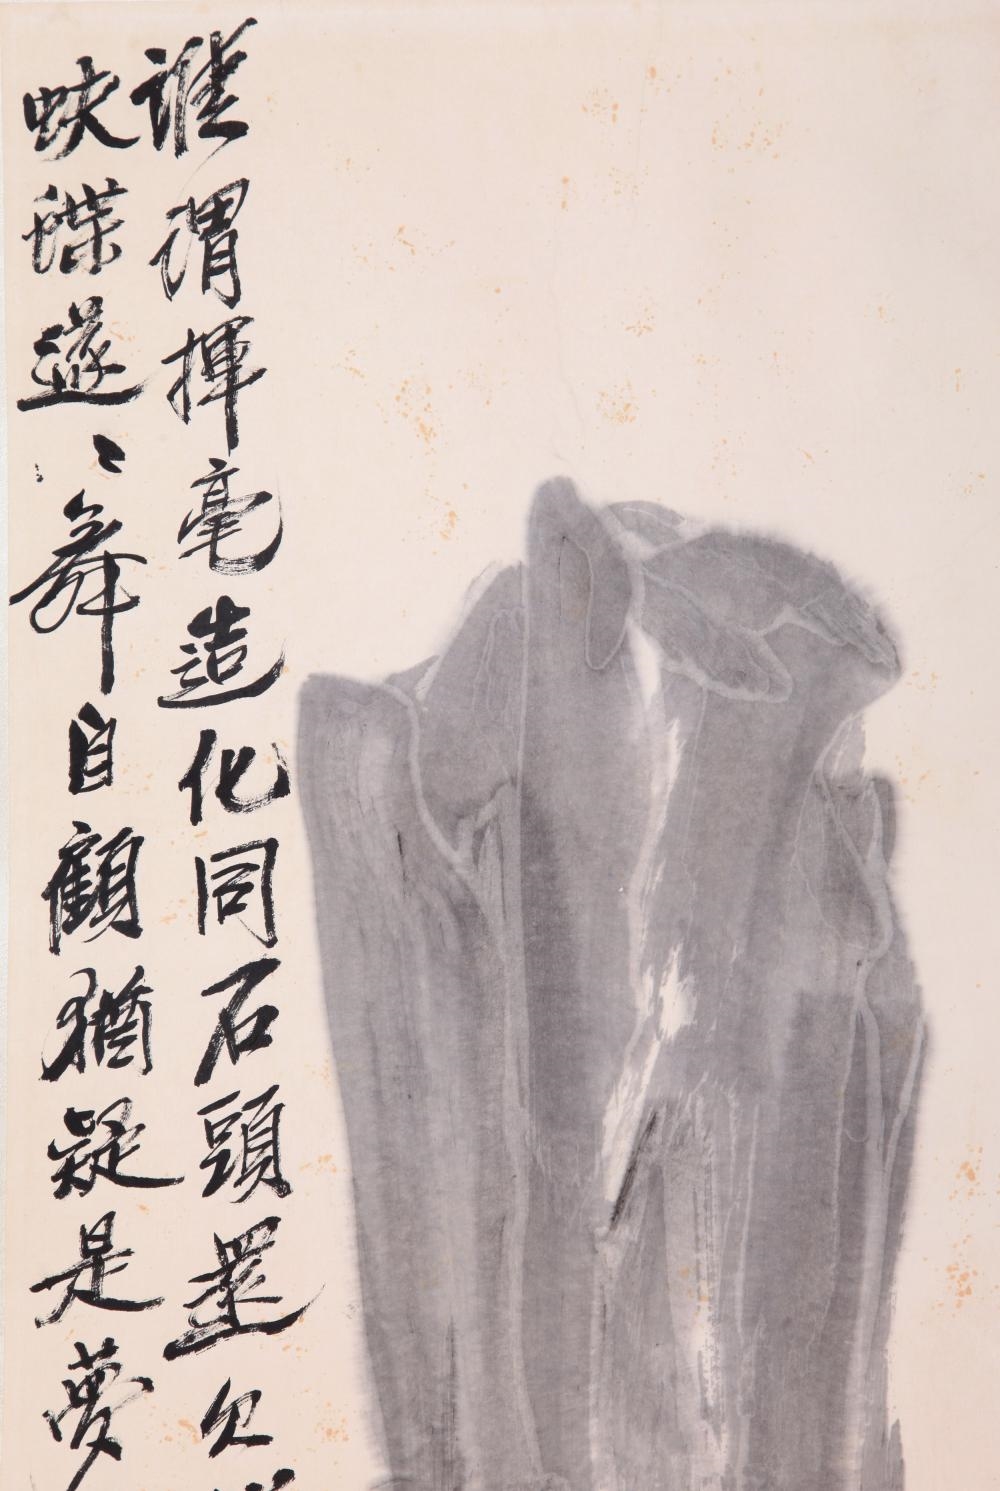 誰謂揮毫造化同石頭墨欠
蛱蝶蘧〻舞自顧猶疑是夢